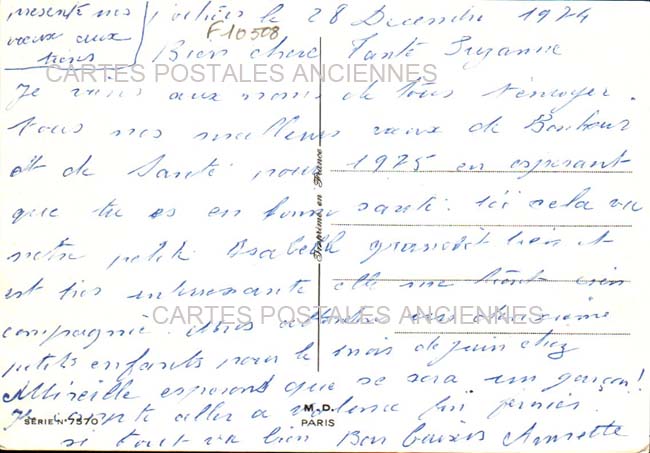 presente mes
vœux aux
tiens
Poitiers le 28 Decembre 1974
F10508
Bien chere Tante Suzanne
CARTES POSTALES ANCIENNES
Je viens aux noms de tous t'envoyer
tous nos meilleurs vœux de Bonheur
et de Santé pour 1975 en esperant
que tu es en bonne santé. ici cela va
notre petite Isabelle grandit bien et
est tres interessante elle me tient bien
CARTES POSTALES ANCIENNES
compagnie. nous attendons un deuxième
petits enfants pour le mois de juin chez
Mireille esperons que se sera un garçon!
Je compte aller a Valence fin janvier
si tout va bien Bons baisers Annette
Imprimé en France
M.D.
PARIS
SERIE N° 7570